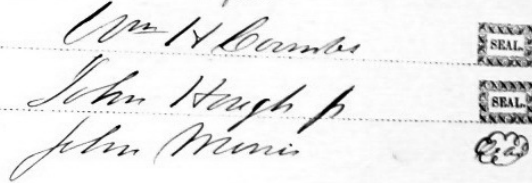 Wm H Coombs SEAL.
John Hough Jr SEAL.
John Morris Seal